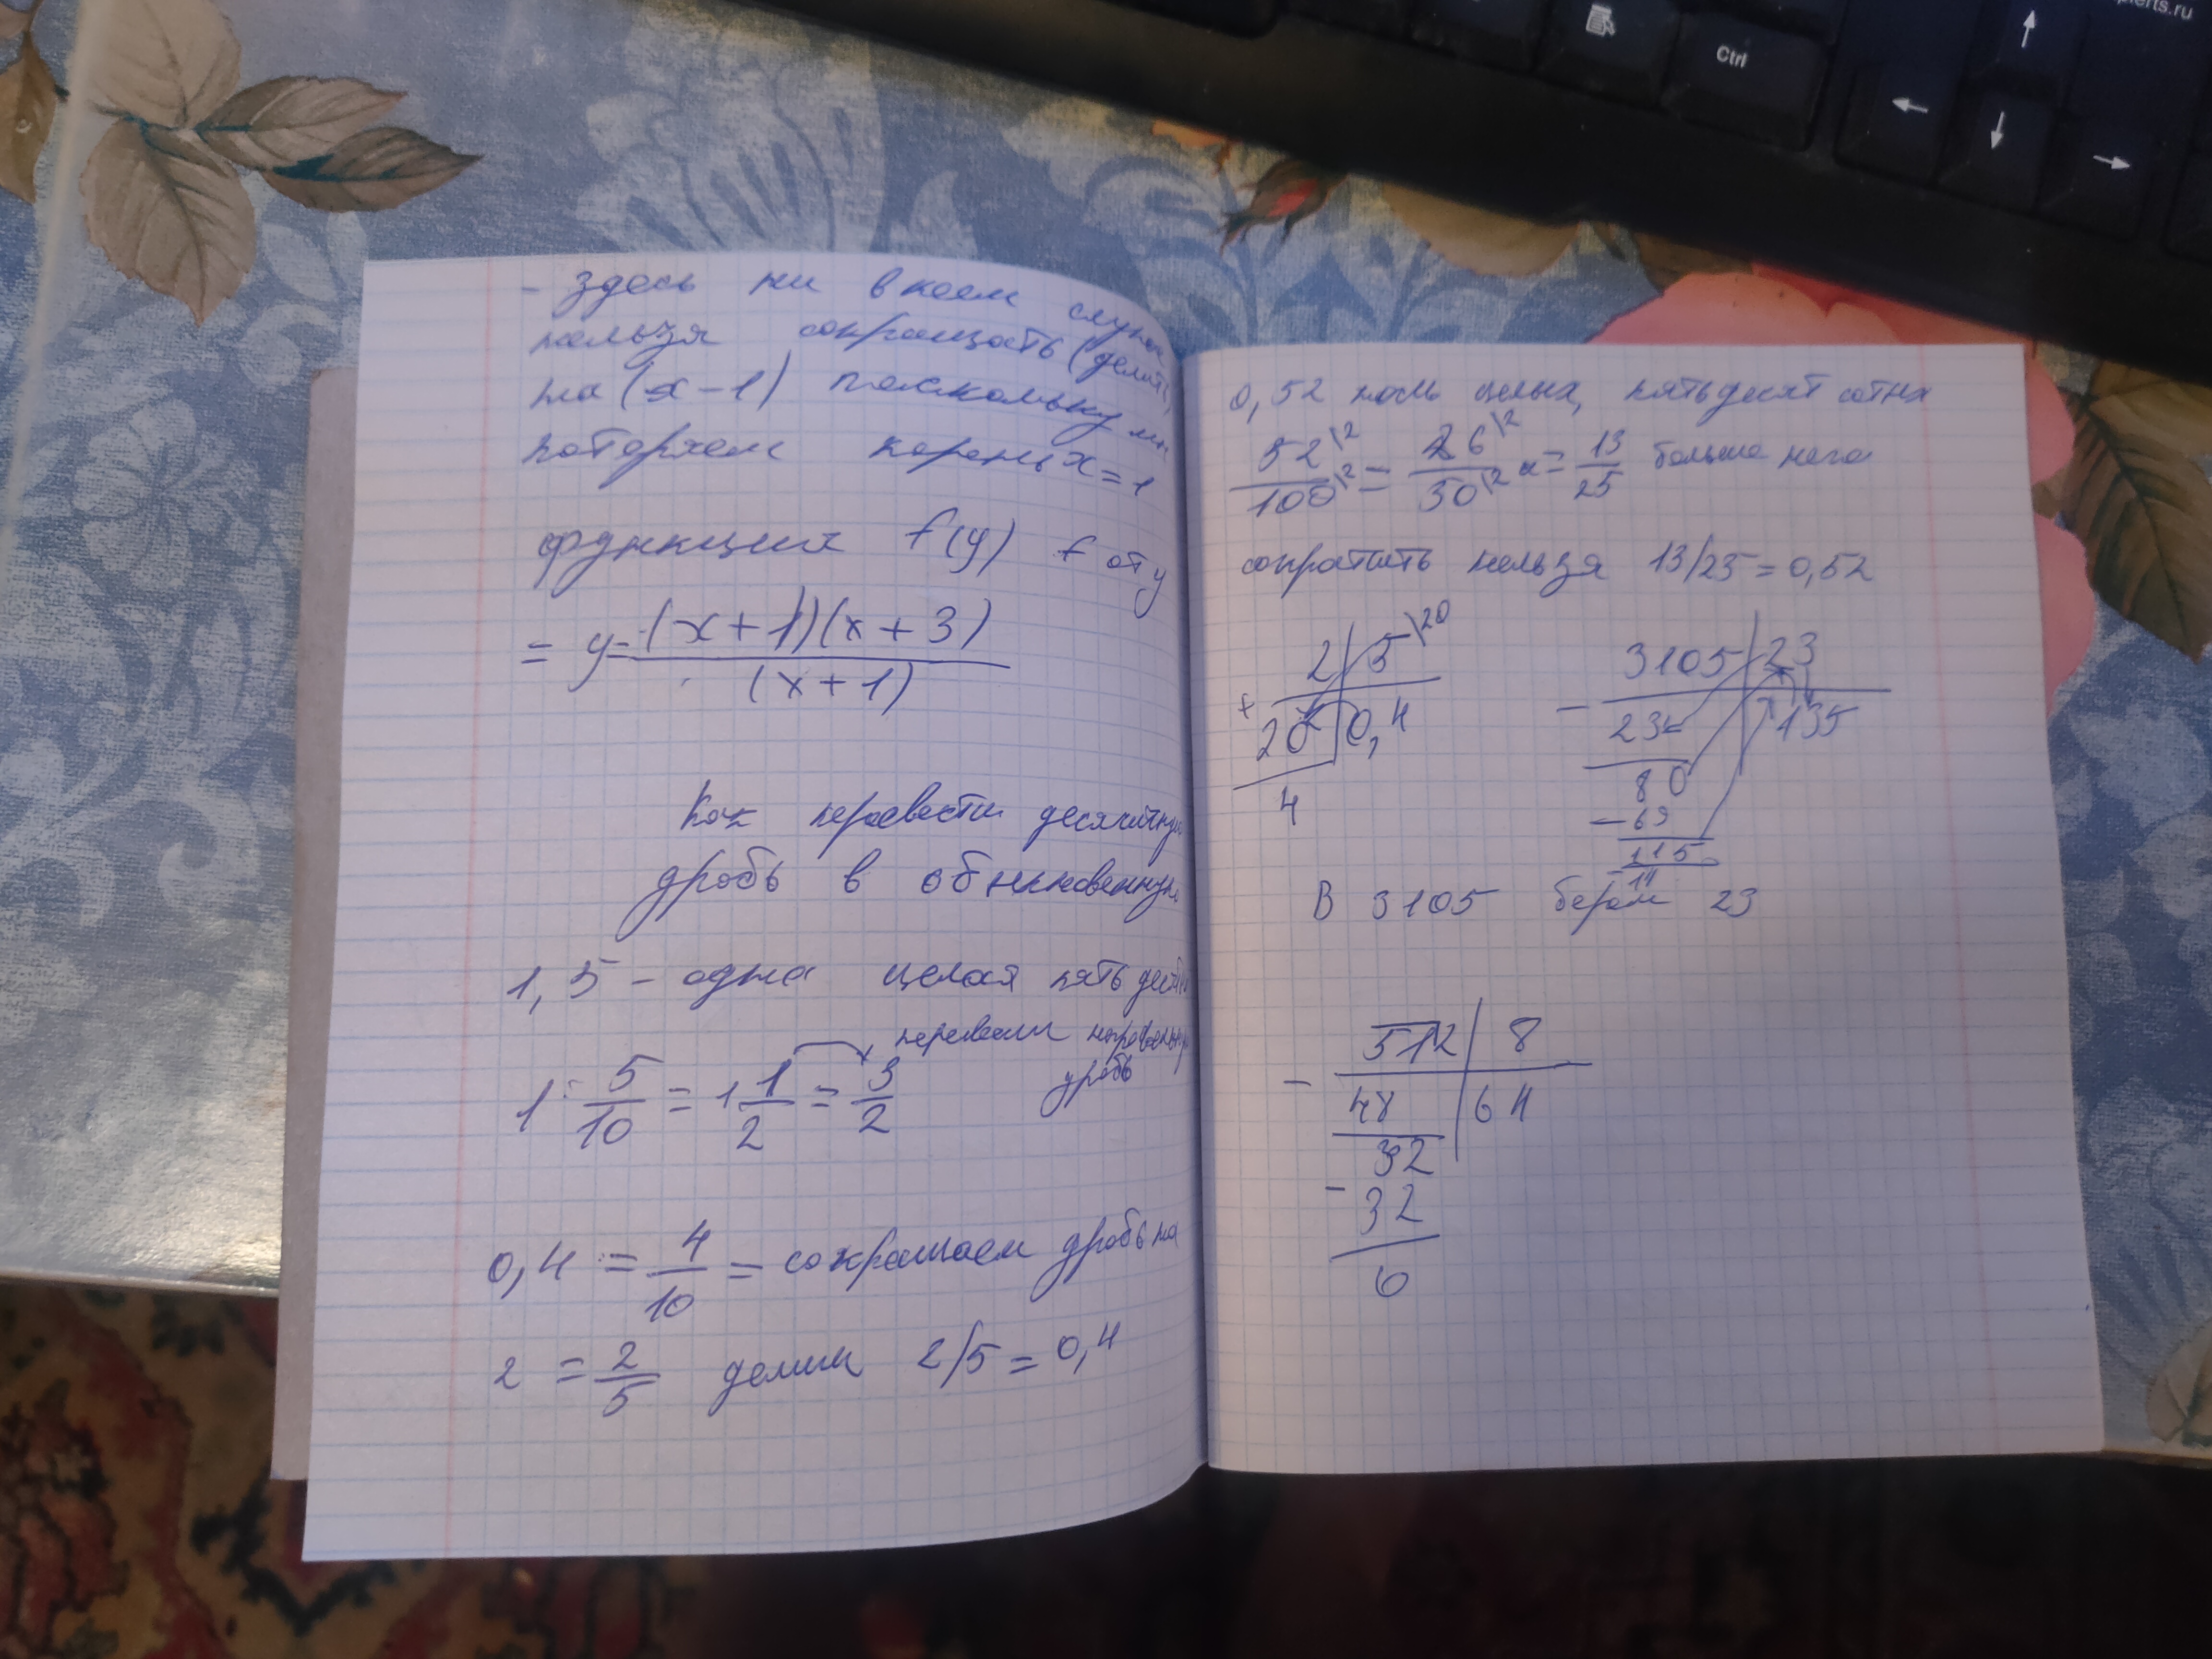 - здесь ни в коем случае
нельзя сокращать (делить)
на (x - 1) поскольку мы
потеряем корень x = 1
функция f(y) f от y
= y = (x + 1)(x + 3)
(x + 1)
Как перевести десятичную
дробь в обыкновенную
1,5 - одна целая пять десятых
перевели неправильную
дробь
1 5/10 = 1 1/2 = 3/2
0,4 = 4/10 = сокращаем дробь на
2 = 2/5 делим 2/5 = 0,4
0,52 ноль целых, пятьдесят сотых
52\2/100\2 = 26\2/50\2 = 13/25 больше него
сократить нельзя 13/25 = 0,52
2 5\20
20 0,4
4
3105 23
- 23
135
80
- 69
115
В 3105 берем 23
512 8
- 48
64
32
- 32
0
Ctrl